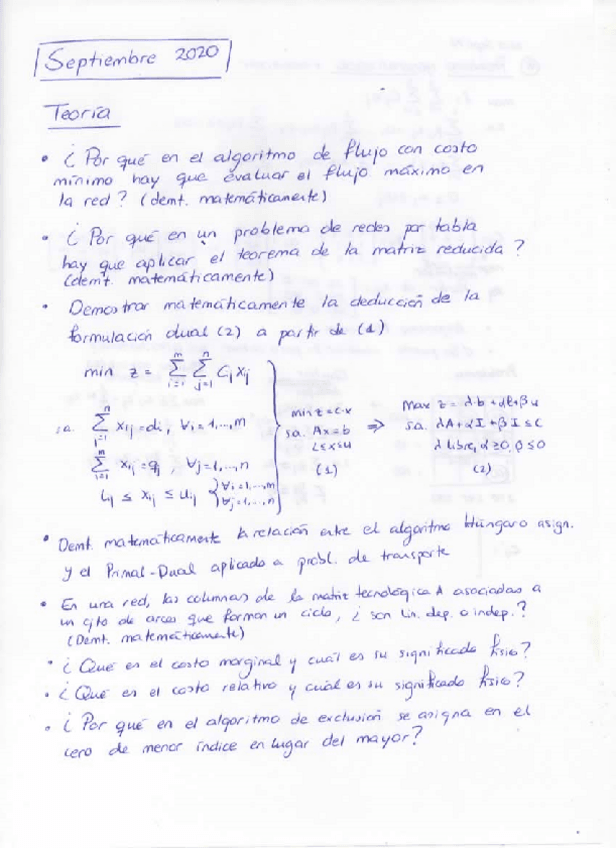 Septiembre 2020
Teoría
• ¿Por qué en el algoritmo de flujo con costo
mínimo hay que evaluar el flujo máximo en
la red? (demt. matemáticamente)
• ¿Por qué en un problema de redes por tabla
hay que aplicar el teorema de la matriz reducida?
(demt. matemáticamente)
• Demostrar matemáticamente la deducción de la
formulación dual (2) a partir de (1)
min z = Σ_{i=1}^{m} Σ_{j=1}^{n} Cij Xij
s.a. Σ_{j=1}^{n} Xij = di, ∀i=1,...,m
Σ_{i=1}^{m} Xij = qj, ∀j=1,...,n
Lij ≤ Xij ≤ uij } ∀i=1,...,m ∀j=1,...,n
min z = c·x
s.a. Ax=b
L≤x≤u
(1)
⇒
Max z = λ·b + αl + βu
s.a. λA + αI + βI ≤ C
λ libre, α≥0, β≤0
(2)
• Demt. matemáticamente la relación entre el algoritmo Húngaro asign.
y el Primal-Dual aplicado a probl. de transporte
• En una red, las columnas de la matriz tecnológica A asociadas a
un cjto de arcos que forman un ciclo, ¿son lin. dep. o indep.?
(Demt. matemáticamente)
• ¿Qué es el costo marginal y cuál es su significado físico?
• ¿Qué es el costo relativo y cuál es su significado físico?
• ¿Por qué en el algoritmo de exclusión se asigna en el
cero de menor índice en lugar del mayor?